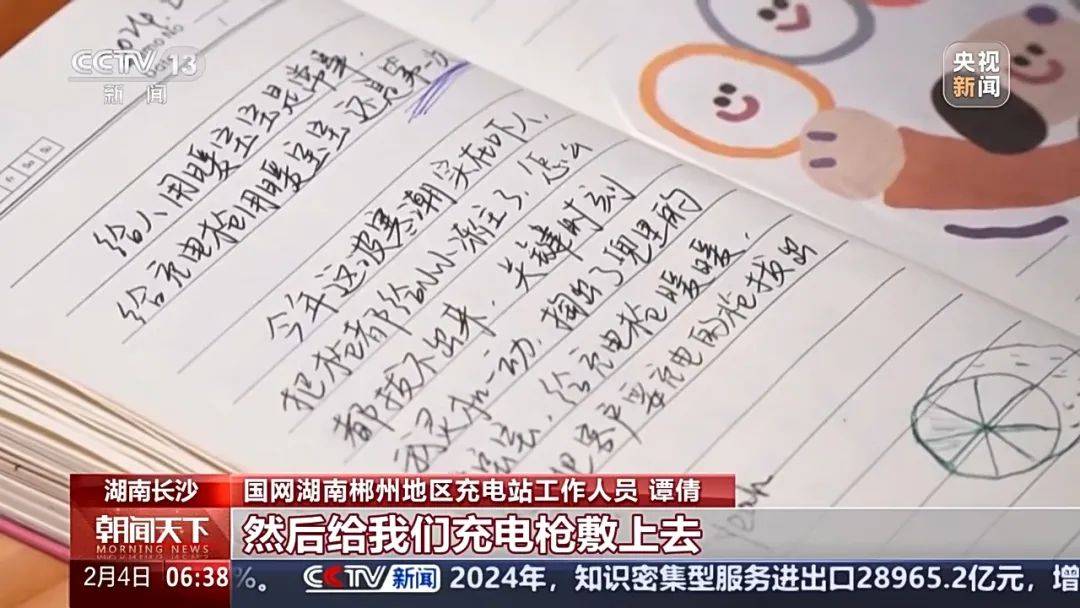 CCTV 13
新闻
央视
新闻
给人用暖宝宝是常事,
给充电枪用暖宝宝还是第一次
今年这波寒潮实在吓人,
把枪都给冰冻住了,怎么
都拔不出来,关键时刻
我灵机一动,掏出了兜里的
给充电枪暖暖,
把客户要充电的枪拔出
湖南长沙
国网湖南郴州地区充电站工作人员 谭倩
朝闻天下
MORNING NEWS
然后给我们充电枪敷上去
2月4日 06:38
%。 CCTV新闻 2024年,知识密集型服务进出口28965.2亿元,增